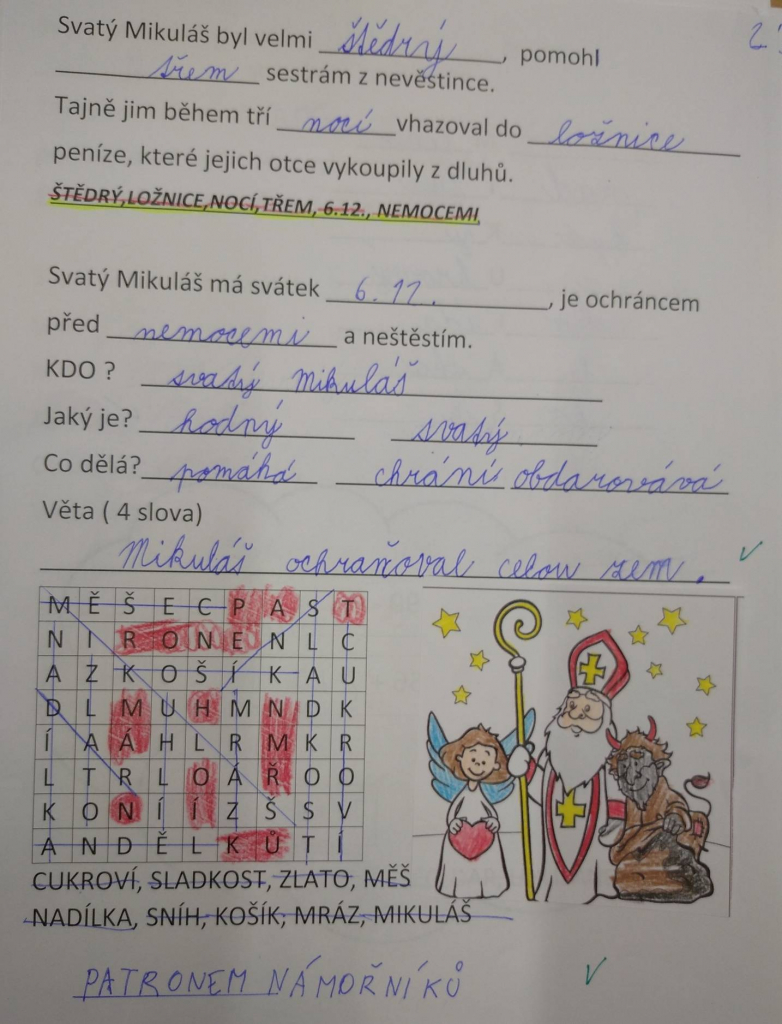 Svatý Mikuláš byl velmi štědrý, pomohl
třem sestrám z nevěstince.
Tajně jim během tří nocí vhazoval do ložnice
peníze, které jejich otce vykoupily z dluhů.
ŠTĚDRÝ,LOŽNICE,NOCÍ,TŘEM, 6.12., NEMOCEMI
Svatý Mikuláš má svátek 6.12., je ochráncem
před nemocemi a neštěstím.
KDO ? svatý Mikuláš
Jaký je? hodný svatý
Co dělá? pomáhá chrání obdarovává
Věta ( 4 slova)
Mikuláš ochraňoval celou zem.
M Ě Š E C P A S T
N I R O N E N L C
A Z K O Š Í K A U
D L M U H M N D K
Í A Á H L R M K R
L T R L O Á Ř O O
K O N Í Í Z Š S V
A N D Ě L K Ů T Í
CUKROVÍ, SLADKOST, ZLATO, MĚŠ
NADÍLKA, SNÍH, KOŠÍK, MRÁZ, MIKULÁŠ
PATRONEM NÁMOŘNÍKŮ